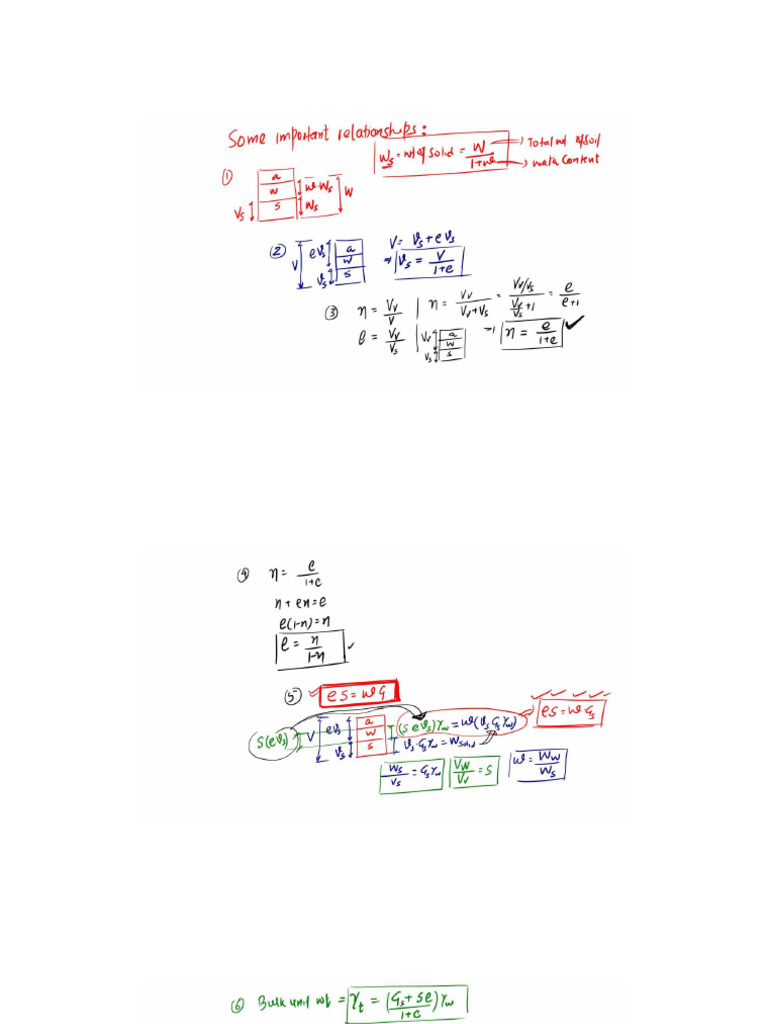 Some important relationships:
W_s = wt of solid = W/(1+w) → Total wt of soil
→ water content
①
a
w
s
V_s
w·W_s
W_s
W
②
V
eV_s
V_s
a
w
s
V = V_s + eV_s
⇒ V_s = V/(1+e)
③ η = V_v/V | η = V_v/(V_v+V_s) = (V_v/V_s)/(V_v/V_s + 1) = e/(e+1)
e = V_v/V_s
V_v
V_s
a
w
s
⇒ η = e/(1+e) ✓
④ η = e/(1+e)
η + eη = e
e(1-η) = η
e = η/(1-η) ✓
⑤ ✓ eS = wG
S(eV_s)
V
eV_s
V_s
a
w
s
(S e V_s)γ_w = w(V_s G_s γ_w)
✓ ✓ ✓ ✓
⇒ eS = wG_s
V_s·G_s γ_w = W_solid
W_s/V_s = G_s γ_w
V_w/V_v = S
w = W_w/W_s
⑥ Bulk unit wt = γ_t = ((G_s + Se)/(1+e)) γ_w